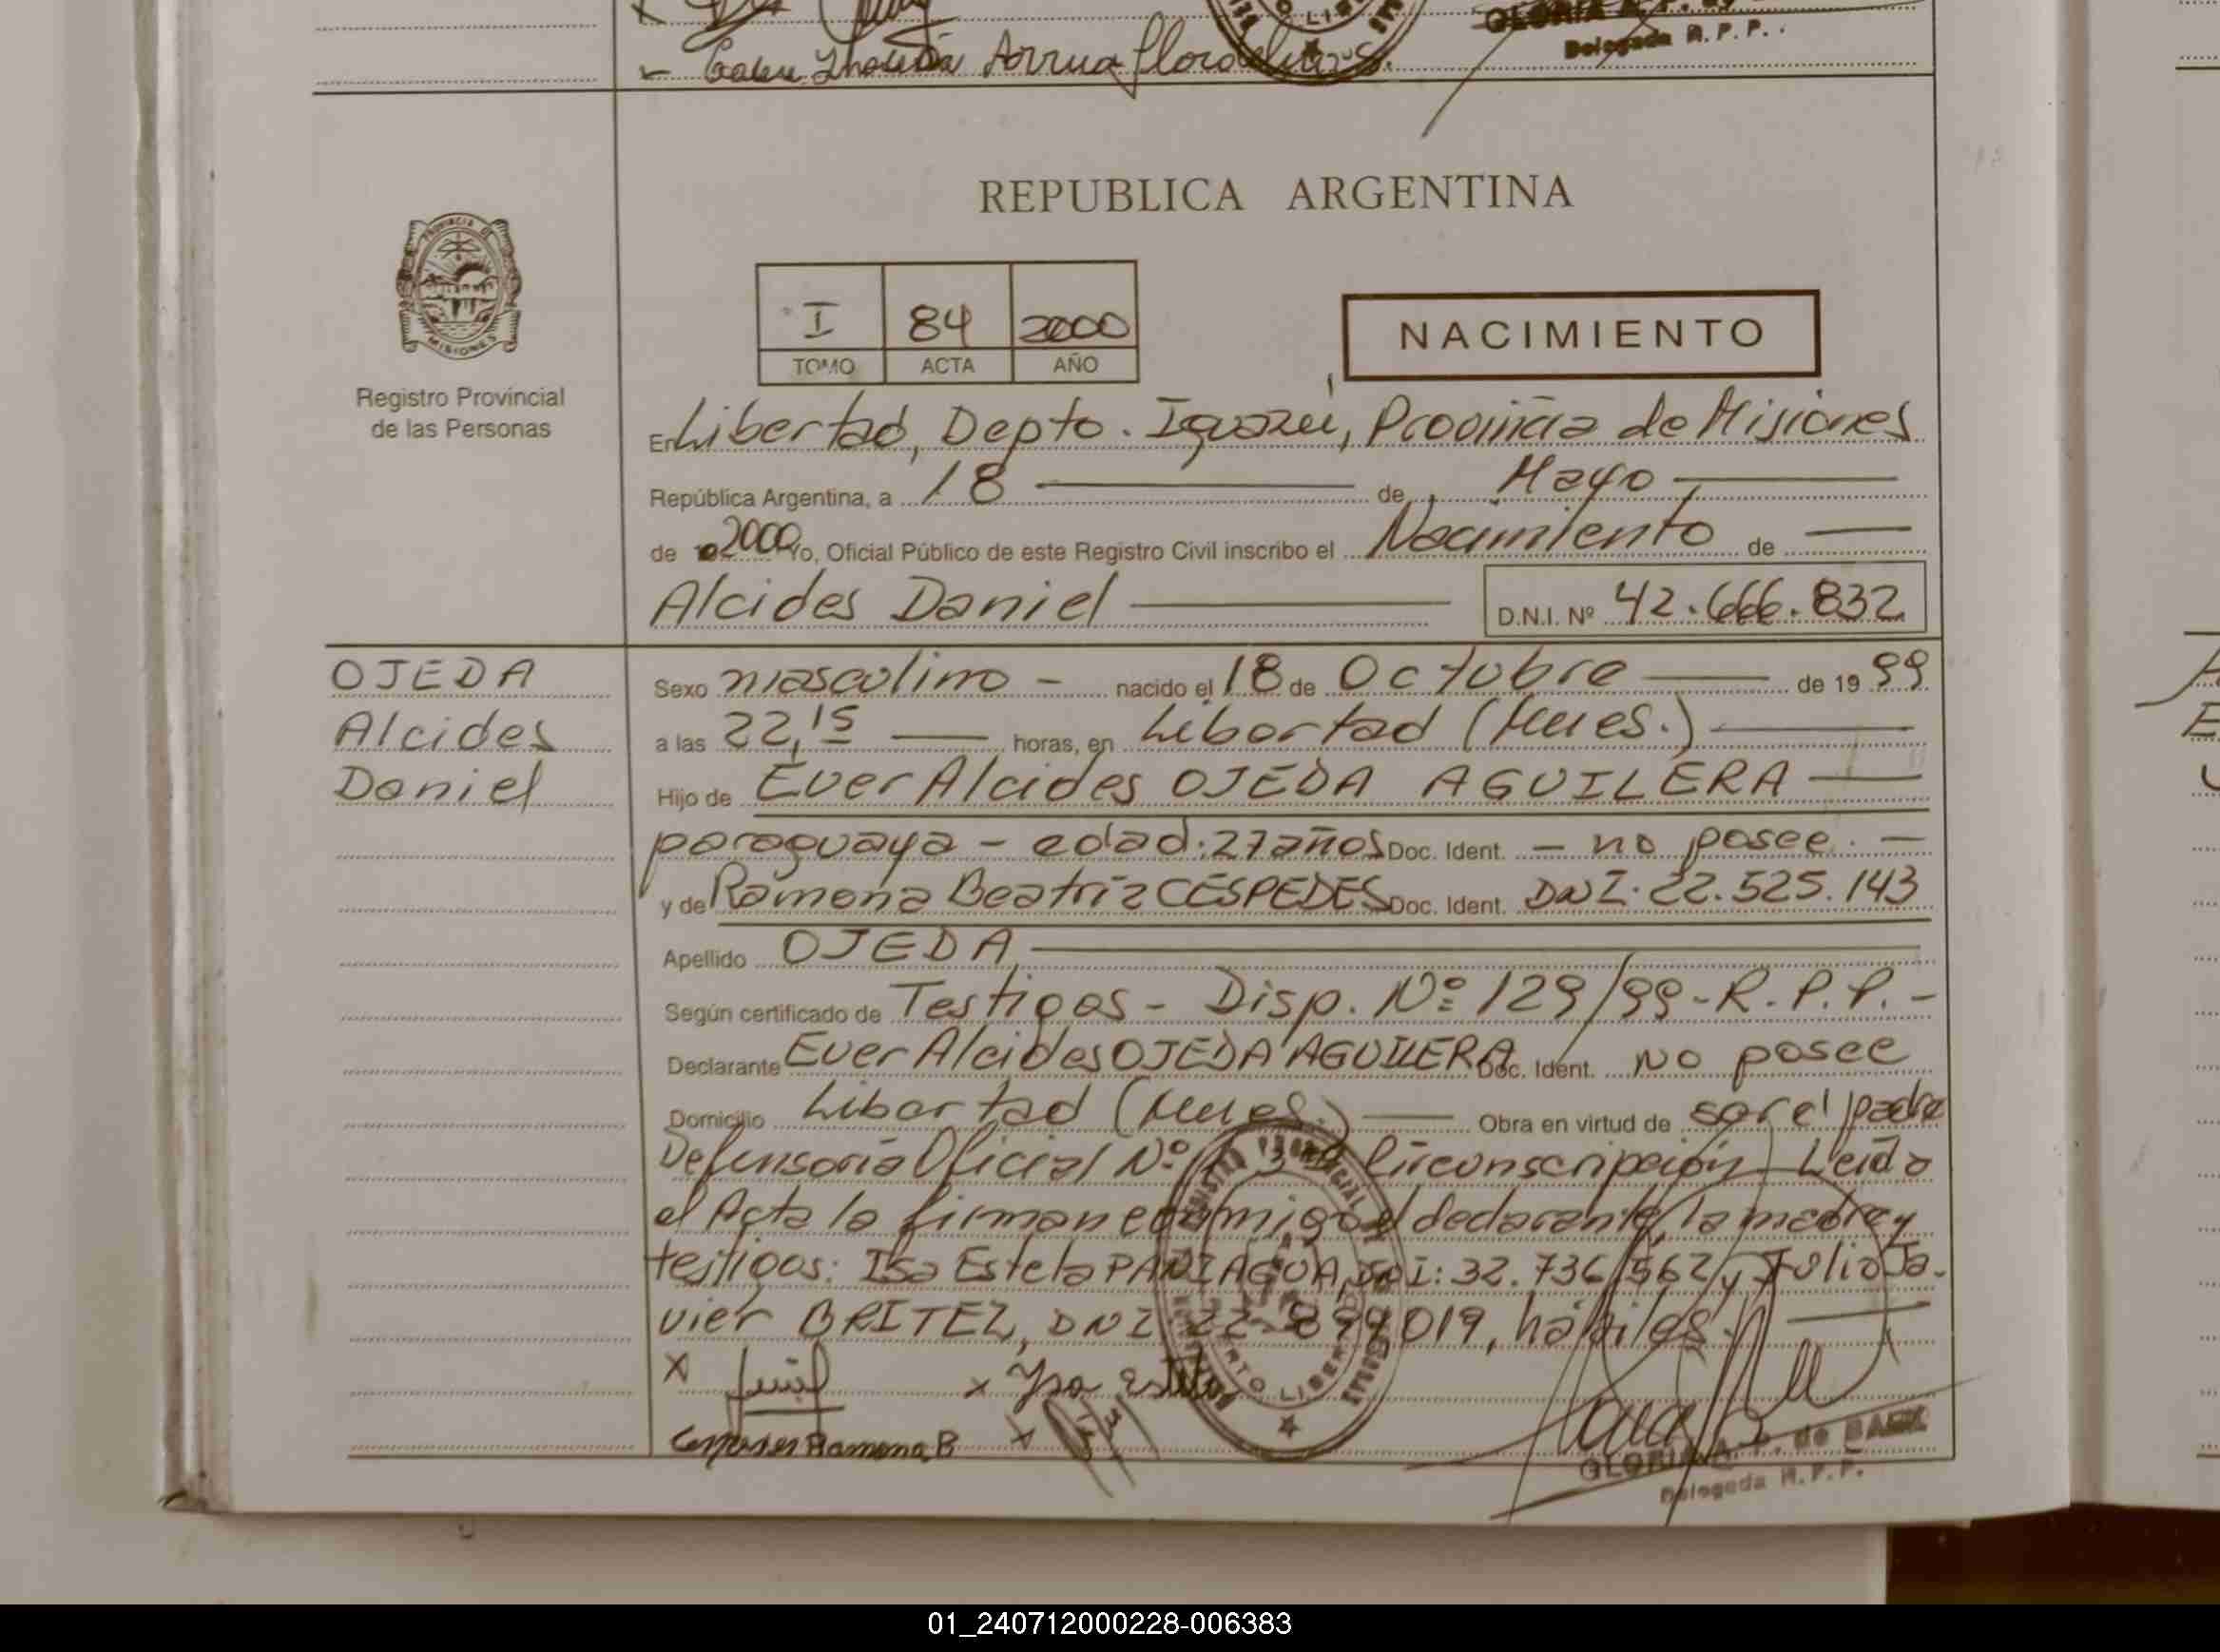 Arrua
GLORIA
Delegada R.P.P.
REPUBLICA ARGENTINA
PROVINCIA DE
MISIONES
Registro Provincial
de las Personas
I 84 2000
TOMO ACTA AÑO
NACIMIENTO
En Libertad, Depto. Iguazú, Provincia de Misiones
República Argentina, a 18 de Mayo
de 2000 Yo, Oficial Público de este Registro Civil inscribo el Nacimiento de
Alcides Daniel D.N.I. Nº 42.666.832
OJEDA
Alcides
Daniel
Sexo masculino - nacido el 18 de Octubre de 19 99
a las 22,15 horas, en Libertad (Mnes.)
Hijo de Ever Alcides OJEDA AGUILERA
paraguaya - edad: 27 años Doc. Ident. - no posee. -
y de Ramona Beatriz CESPEDES Doc. Ident. DNI. 22.525.143
Apellido OJEDA
Según certificado de Testigos - Disp. Nº 129/99-R.P.P. -
Declarante Ever Alcides OJEDA AGUILERA Doc. Ident. No posee
Domicilio Libertad (Mnes.) Obra en virtud de ser el padre
Defensoría Oficial Nº 1 3ª Circonscripción Leída
el Acta la firman conmigo el declarante, la madre y
testigos: Isa Estela PANIAGUA, DNI: 32.736.562 y Julio Ja-
vier BRITEZ, DNI 22.899.019, hábiles.
x x Ysa Estela
Ramona B x
PUERTO LIBERTAD
GLORIA A. P. de BAEZ
Delegada R.P.P.
01_240712000228-006383